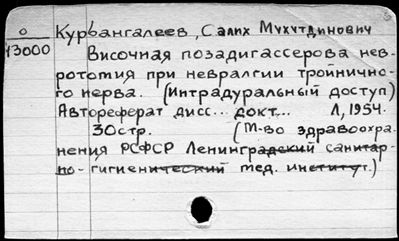 о Курбангалеев, Салих Мухутдинович
13000
Височная позадигассерова нев-
ротомия при невралгии тройнично-
го нерва. (Интрадуральный доступ)
Автореферат дисс... докт... Л, 1954.
30стр. (М-во здравоохра-
нения РСФСР Ленинградский санитар-
но-гигиенический мед. институт.)